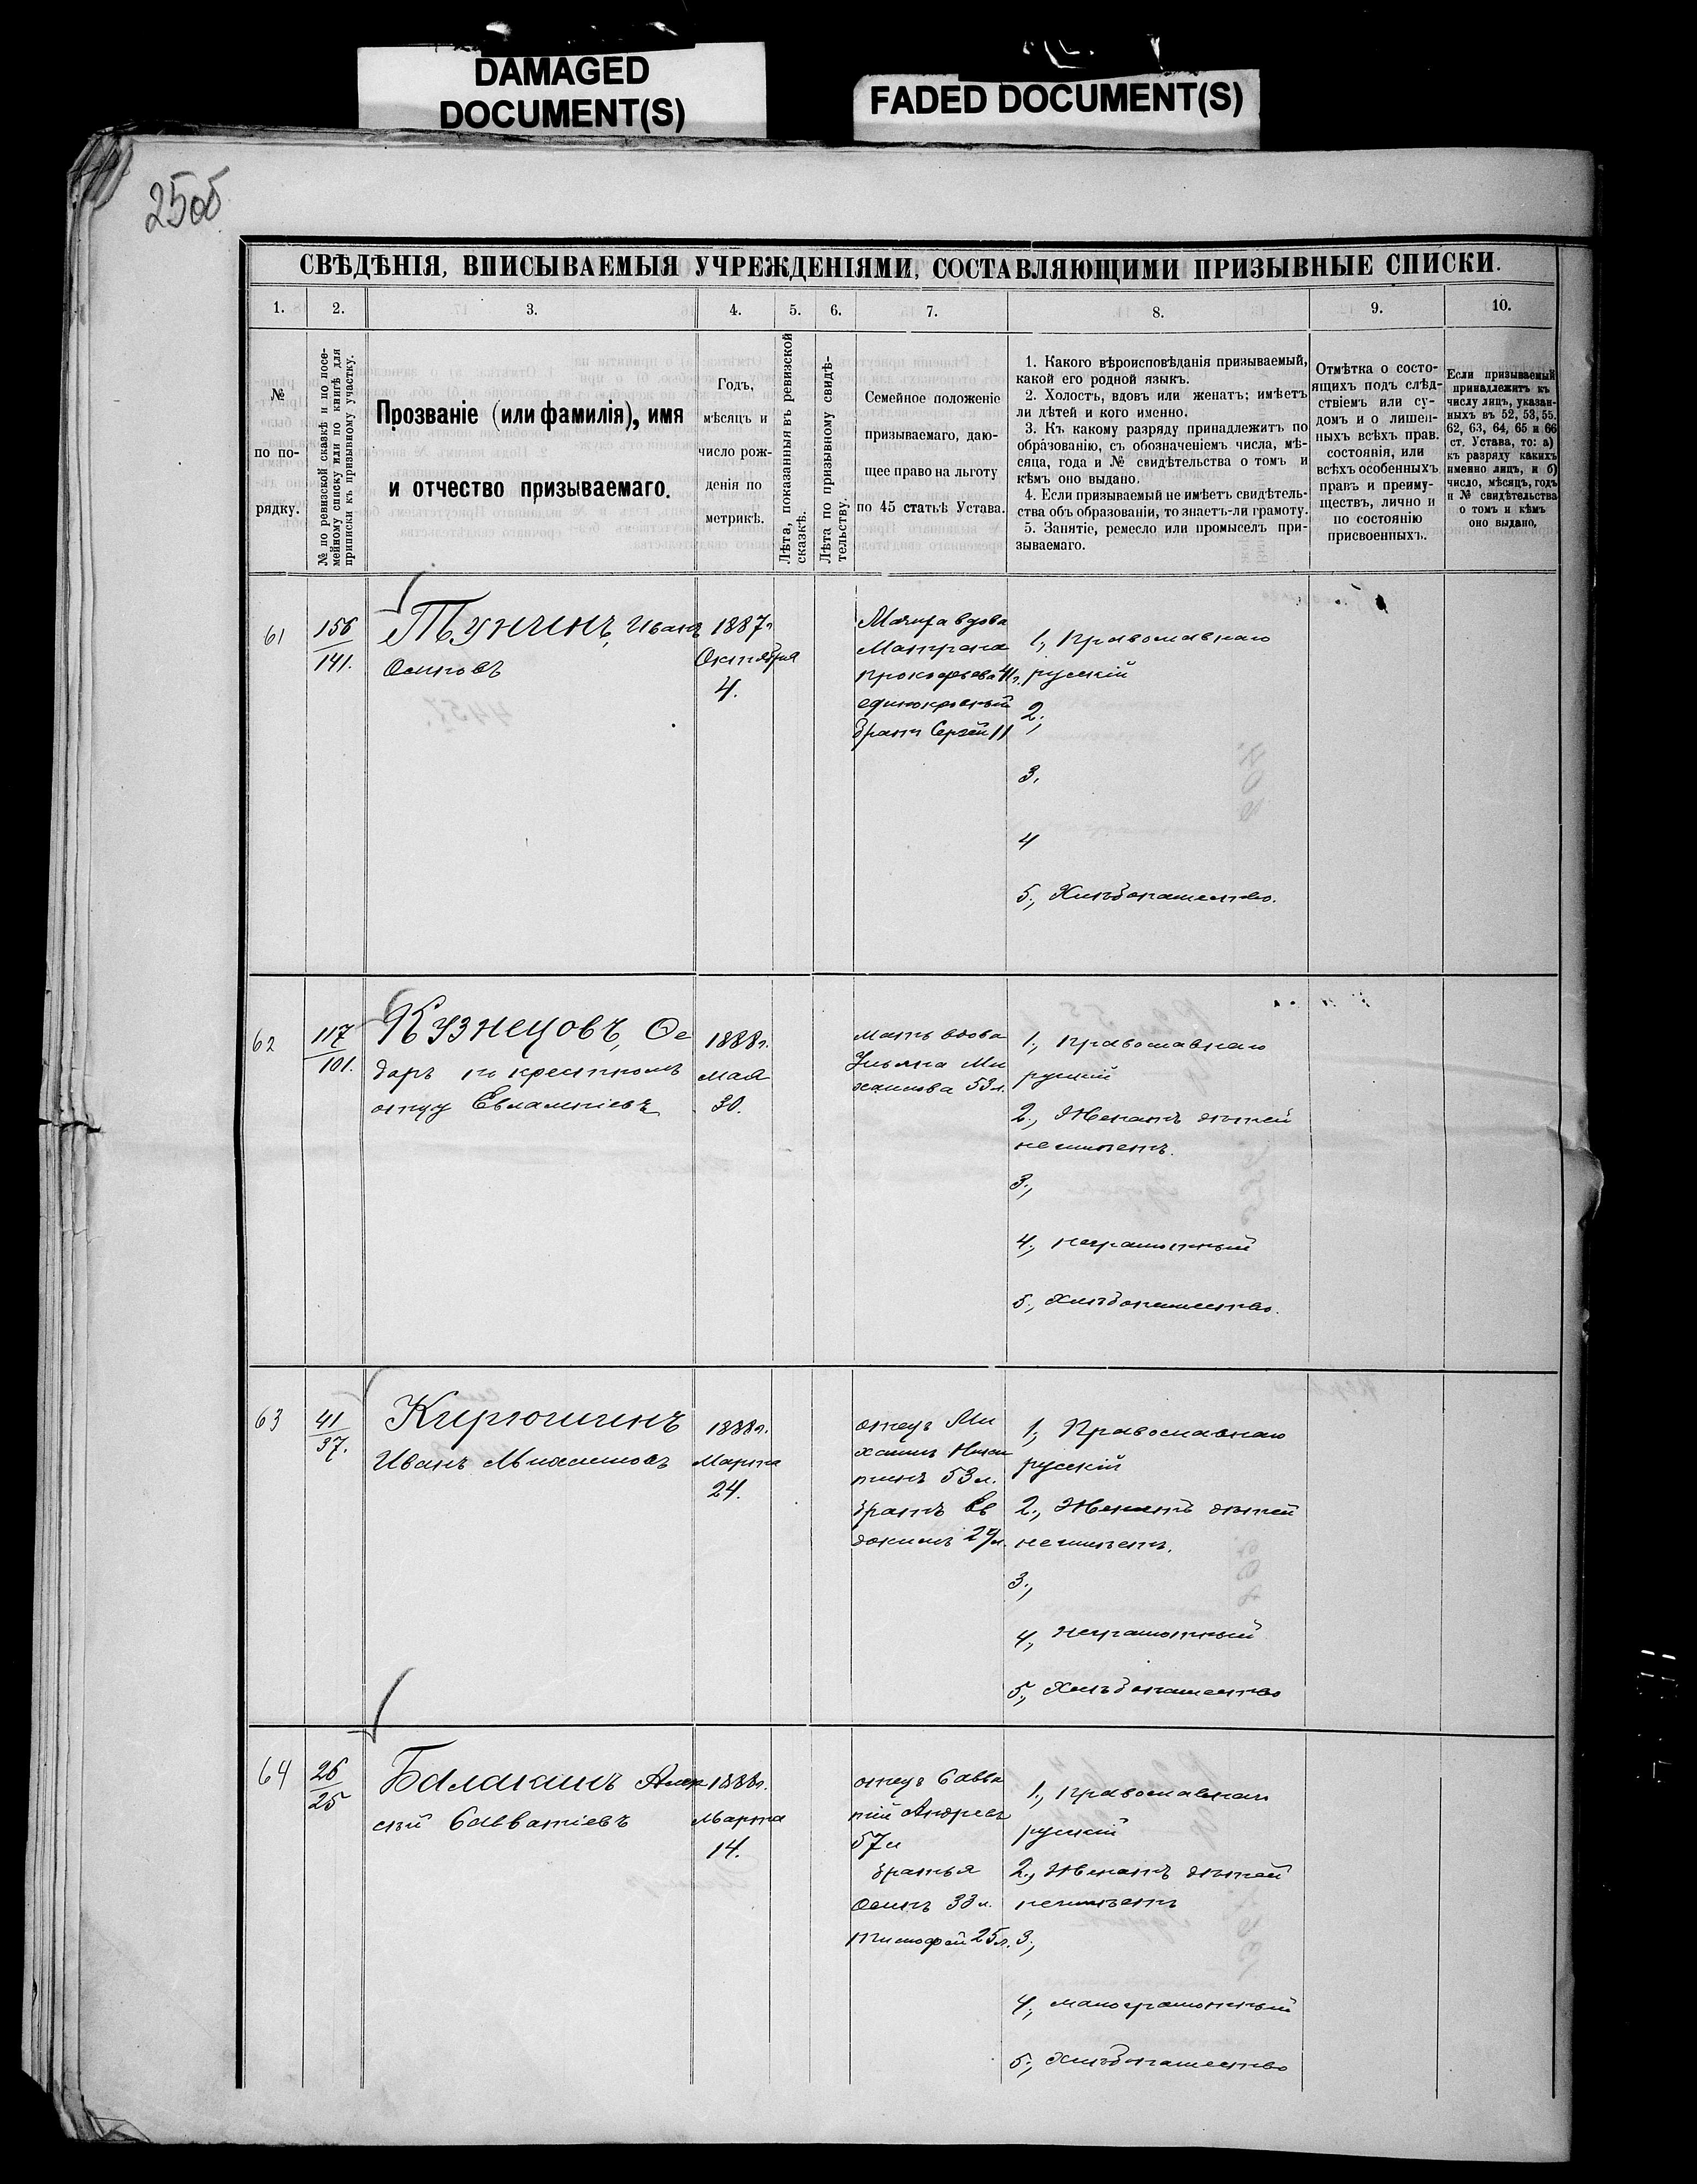 DAMAGED
DOCUMENT(S)
FADED DOCUMENT(S)
25об
СВѢДѢНІЯ, ВПИСЫВАЕМЫЯ УЧРЕЖДЕНІЯМИ, СОСТАВЛЯЮЩИМИ ПРИЗЫВНЫЕ СПИСКИ.
1. 2. 3. 4. 5. 6. 7. 8. 9. 10.
№
по по-
рядку.
№ по ревизской сказкѣ и по посе-
мейному списку или по книгѣ для
приписки къ призывному участку.
Прозваніе (или фамилія), имя
и отчество призываемаго.
Годъ,
мѣсяцъ и
число рож-
денія по
метрикѣ.
Лѣта, показанныя въ ревизской
сказкѣ.
Лѣта по призывному свидѣ-
тельству.
Семейное положеніе
призываемаго, даю-
щее право на льготу
по 45 статьѣ Устава.
1. Какого вѣроисповѣданія призываемый,
какой его родной языкъ.
2. Холостъ, вдовъ или женатъ; имѣетъ
ли дѣтей и кого именно.
3. Къ какому разряду принадлежитъ по
образованію, съ обозначеніемъ числа, мѣ-
сяца, года и № свидѣтельства о томъ и
кѣмъ оно выдано.
4. Если призываемый не имѣетъ свидѣтель-
ства объ образованіи, то знаетъ-ли грамоту.
5. Занятіе, ремесло или промыселъ при-
зываемаго.
Отмѣтка о состо-
ящихъ подъ слѣд-
ствіемъ или су-
домъ и о лишен-
ныхъ всѣхъ прав.
состоянія, или
всѣхъ особенныхъ
правъ и преиму-
ществъ, лично и
по состоянію
присвоенныхъ.
Если призываемый
принадлежитъ къ
числу лицъ, указан-
ныхъ въ 52, 53, 55.
62, 63, 64, 65 и 66
ст. Устава, то: а)
къ разряду какихъ
именно лицъ, и б)
число, мѣсяцъ, годъ
и № свидѣтельства
о томъ и кѣмъ
оно выдано.
61
156
141.
Тунчинъ, Иванъ
Осиповъ
1887г
Октября
4.
вдова
Матрена
Прокофьева 41л.
единокровный
братъ Сергѣй 11
1, Православнаго
русскій
2,
3.
4
5, Хлѣбопашество.
62
117
101.
Кузнецовъ, Ѳе
доръ по крестному
отцу Евлампіевъ
1888г.
мая
30.
мать вдова
Ульяна Ми
хайлова 53л.
1, Православнаго
русскій
2, Женатъ дѣтей
неимѣетъ.
3,
4, неграмотный
5, Хлѣбопашество.
63
41
37.
Кирюшинъ
Иванъ Михайловъ
1888г.
Марта
24.
отецъ Ми
хаилъ
53л.
братъ Ев
докимъ 29л.
1, Православнаго
русскій
2, Женатъ дѣтей
неимѣетъ.
3,
4, неграмотный
5, Хлѣбопашество
64
26
25
Балакинъ Алек
сѣй Савватіевъ
1888г.
Марта
14.
отецъ Савва
тій Андреевъ
57л
братья
Осипъ 33л.
Тимофѣй 25л.
1, Православнаго
русскій
2, Женатъ дѣтей
неимѣетъ
3,
4, малограмотный
5, Хлѣбопашество